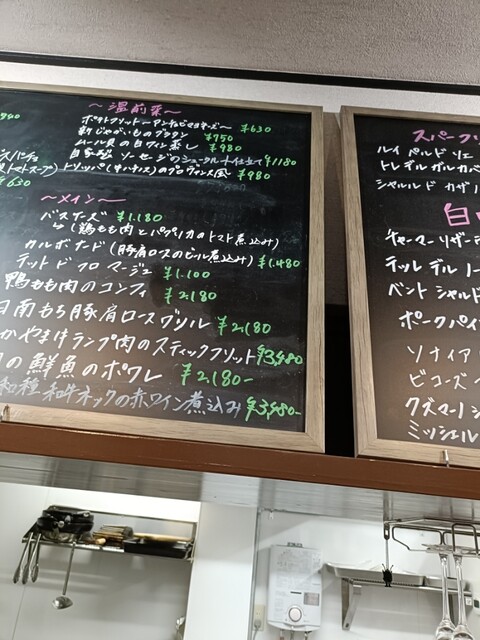 ～温前菜～
ポテトフリット～アンチョビマヨネーズ～ ¥630
新じゃがいものグラタン ¥750
ムール貝の白ワイン蒸し ¥980
自家製ソーセージのシュークルート仕立て ¥1180
トリッパ(牛ハチノス)のプロヴァンス風 ¥980
トマトスープ)
¥630
～メイン～
バスケーズ ¥1.180
↳(鶏もも肉とパプリカのトマト煮込み)
カルボナード(豚肩ロースのビール煮込み) ¥1.480
テット ド フロマージュ ¥1.100
鴨もも肉のコンフィ ¥2.180
日南もち豚肩ロースグリル ¥2.180
かやまけランプ肉のスティックフリット ¥3,480
の鮮魚のポワレ ¥2.180-
和種和牛ネックの赤ワイン煮込み ¥3,480-
スパーク
ルイ ペルドリエ
トレ デル ガルカバ
シャルル ド カザノ
白
チャーマー リザー
テッレ デル ノ
ベント シャルド
ポークパイ
ソナイア
ビコーズ
クズマーノ シ
ミッシェル